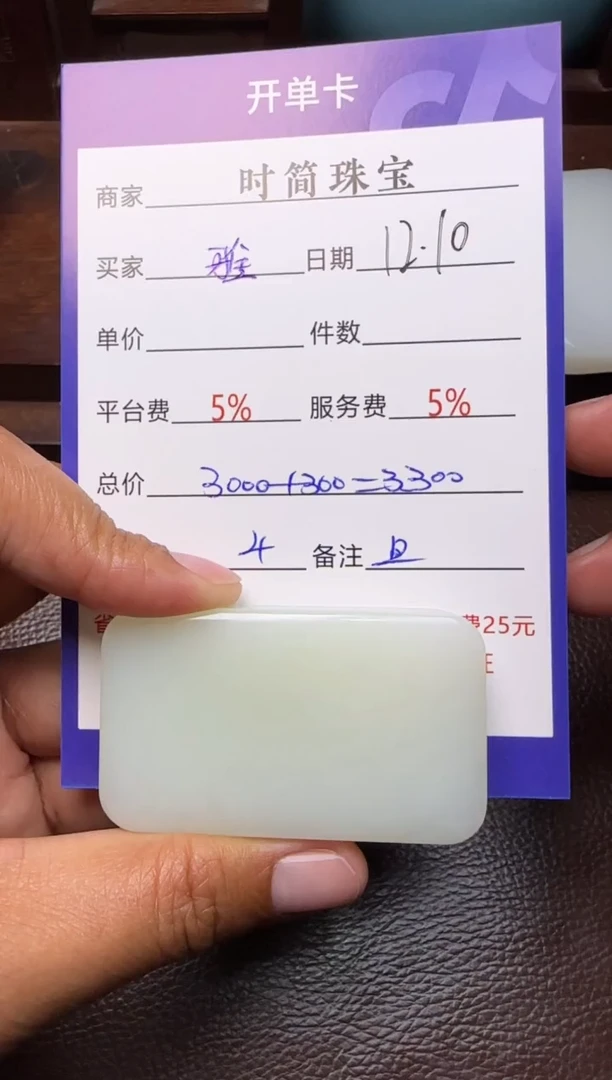 开单卡
商家 时简珠宝
买家 雅 日期 12.10
单价 件数
平台费 5% 服务费 5%
总价 3000+300=3300
4 备注
省 费25元